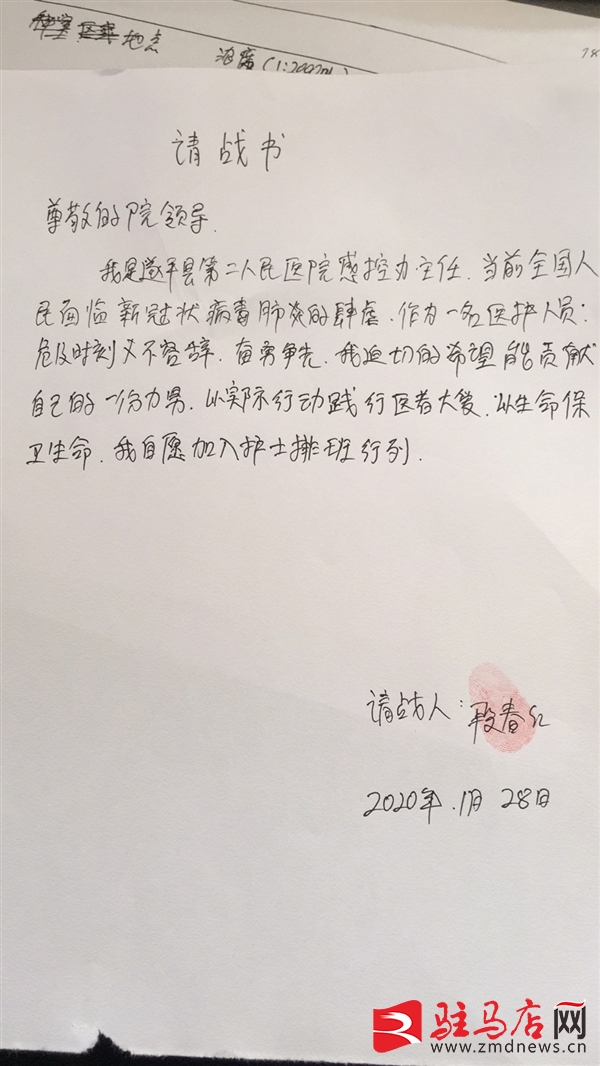 地点
浓度(1:200
请战书
尊敬的院领导.
我是遂平县第二人民医院感控办主任.当前全国人
民面临新冠状病毒肺炎的肆虐.作为一名医护人员:
危及时刻义不容辞.奋勇争先.我迫切的希望能贡献
自己的一份力男.以实际行动践行医者大爱.以生命保
卫生命.我自愿加入护士排班行列.
请战人:段春红
2020年.1月 28日
驻马店网
www.zmdnews.cn